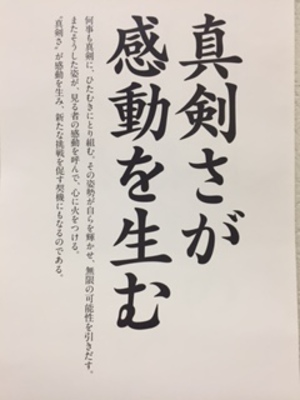 真剣さが
感動を生む
何事も真剣に、ひたむきにとり組む。その姿勢が自らを輝かせ、無限の可能性を引きだす。
またそうした姿が、見る者の感動を呼んで、心に火をつける。
“真剣さ”が感動を生み、新たな挑戦を促す契機にもなるのである。